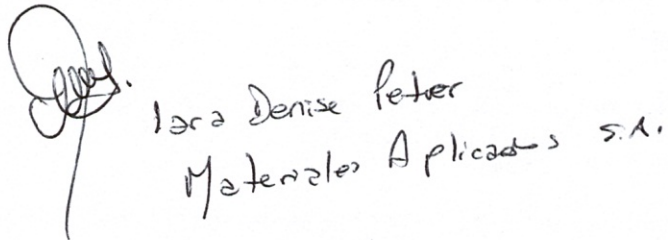 Iara Denise Petver
Materiales Aplicados S.A.